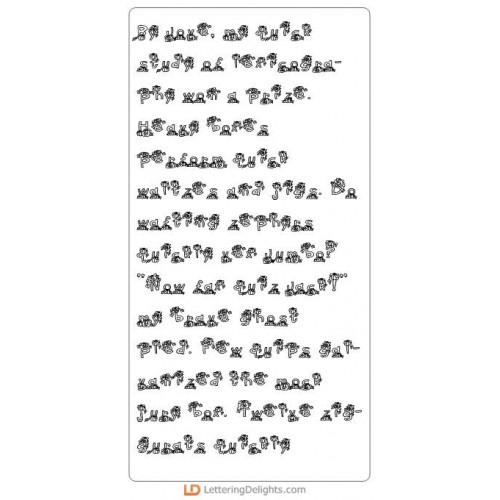 By Jove, my quick
study of lexicogra-
phy won a prize.
Heavy boxes
perform quick
waltzes and jigs. Do
wafting zephyrs
quickly vex Jumbo?
"Now fax quiz Jack!"
my brave ghost
pled. Few quips gal-
vanized the mock
jury box. Twelve zig-
gurats quickly
LD LetteringDelights.com